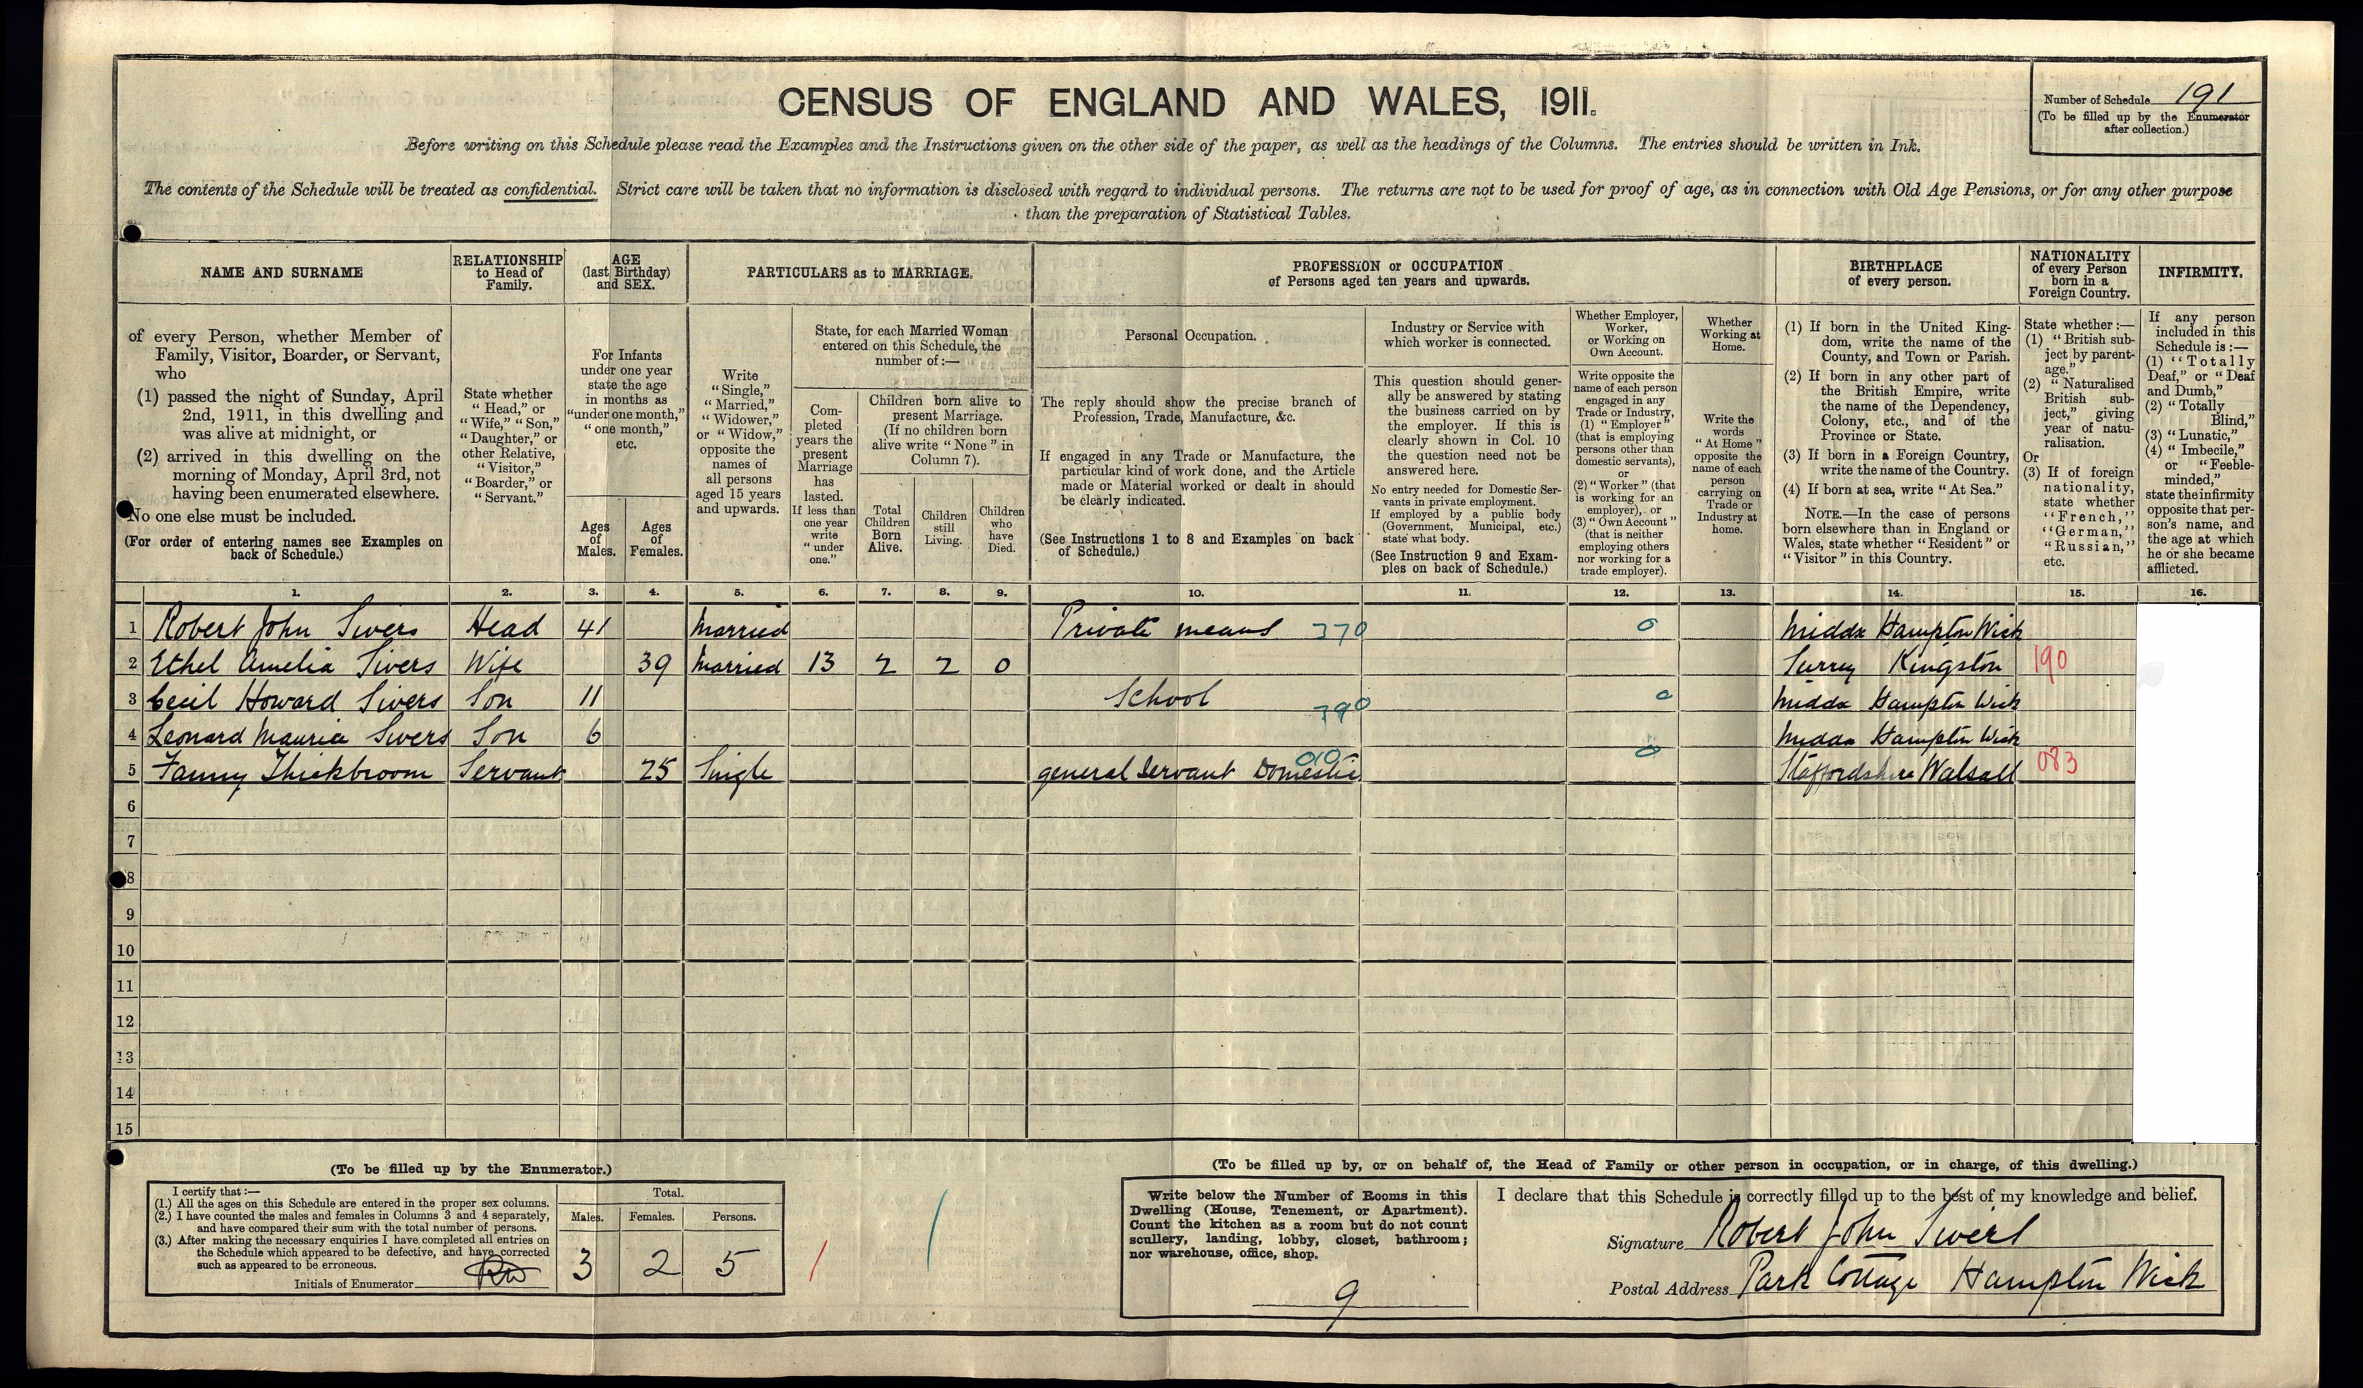 CENSUS OF ENGLAND AND WALES, 1911.
Number of Schedule 191
(To be filled up by the Enumerator
after collection.)
Before writing on this Schedule please read the Examples and the Instructions given on the other side of the paper, as well as the headings of the Columns. The entries should be written in Ink.
The contents of the Schedule will be treated as confidential. Strict care will be taken that no information is disclosed with regard to individual persons. The returns are not to be used for proof of age, as in connection with Old Age Pensions, or for any other purpose
than the preparation of Statistical Tables.
NAME AND SURNAME
of every Person, whether Member of
Family, Visitor, Boarder, or Servant,
who
(1) passed the night of Sunday, April
2nd, 1911, in this dwelling and
was alive at midnight, or
(2) arrived in this dwelling on the
morning of Monday, April 3rd, not
having been enumerated elsewhere.
No one else must be included.
(For order of entering names see Examples on
back of Schedule.)
RELATIONSHIP
to Head of
Family.
State whether
"Head," or
"Wife," "Son,"
"Daughter," or
other Relative,
"Visitor,"
"Boarder," or
"Servant."
AGE
(last Birthday)
and SEX.
For Infants
under one year
state the age
in months as
"under one month,"
"one month,"
etc.
Ages
of
Males.
Ages
of
Females.
PARTICULARS as to MARRIAGE.
Write
"Single,"
"Married,"
"Widower,"
or "Widow,"
opposite the
names of
all persons
aged 15 years
and upwards.
State, for each Married Woman
entered on this Schedule, the
number of:—
Com-
pleted
years the
present
Marriage
has
lasted.
If less than
one year
write
"under
one."
Children born alive to
present Marriage.
(If no children born
alive write "None" in
Column 7).
Total
Children
Born
Alive.
Children
still
Living.
Children
who
have
Died.
PROFESSION or OCCUPATION
of Persons aged ten years and upwards.
Personal Occupation.
The reply should show the precise branch of
Profession, Trade, Manufacture, &c.
If engaged in any Trade or Manufacture, the
particular kind of work done, and the Article
made or Material worked or dealt in should
be clearly indicated.
(See Instructions 1 to 8 and Examples on back
of Schedule.)
Industry or Service with
which worker is connected.
This question should gener-
ally be answered by stating
the business carried on by
the employer. If this is
clearly shown in Col. 10
the question need not be
answered here.
No entry needed for Domestic Ser-
vants in private employment.
If employed by a public body
(Government, Municipal, etc.)
state what body.
(See Instruction 9 and Exam-
ples on back of Schedule.)
Whether Employer,
Worker,
or Working on
Own Account.
Write opposite the
name of each person
engaged in any
Trade or Industry,
(1) "Employer"
(that is employing
persons other than
domestic servants),
or
(2) "Worker" (that
is working for an
employer), or
(3) "Own Account"
(that is neither
employing others
nor working for a
trade employer).
Whether
Working at
Home.
Write the
words
"At Home"
opposite the
name of each
person
carrying on
Trade or
Industry at
home.
BIRTHPLACE
of every person.
(1) If born in the United King-
dom, write the name of the
County, and Town or Parish.
(2) If born in any other part of
the British Empire, write
the name of the Dependency,
Colony, etc., and of the
Province or State.
(3) If born in a Foreign Country,
write the name of the Country.
(4) If born at sea, write "At Sea."
NOTE.—In the case of persons
born elsewhere than in England or
Wales, state whether "Resident" or
"Visitor" in this Country.
NATIONALITY
of every Person
born in a
Foreign Country.
State whether:—
(1) "British sub-
ject by parent-
age."
(2) "Naturalised
British sub-
ject," giving
year of natu-
ralisation.
Or
(3) If of foreign
nationality,
state whether
"French,"
"German,"
"Russian,"
etc.
INFIRMITY.
If any person
included in this
Schedule is:—
(1) "Totally
Deaf," or "Deaf
and Dumb,"
(2) "Totally
Blind,"
(3) "Lunatic,"
(4) "Imbecile,"
or "Feeble-
minded,"
state the infirmity
opposite that per-
son's name, and
the age at which
he or she became
afflicted.
1. 2. 3. 4. 5. 6. 7. 8. 9. 10. 11. 12. 13. 14. 15. 16.
1 Robert John Sivers Head 41 Married Private means 370 0 Middx Hampton Wick
2 Ethel Amelia Sivers Wife 39 Married 13 2 2 0 Surrey Kingston 190
3 Cecil Howard Sivers Son 11 School 390 0 Middx Hampton Wick
4 Leonard Maurice Sivers Son 6 Middx Hampton Wick
5 Fanny Thickbroom Servant 25 Single general Servant Domestic 010 0 Staffordshire Walsall 083
6
7
8
9
10
11
12
13
14
15
(To be filled up by the Enumerator.)
I certify that:—
(1.) All the ages on this Schedule are entered in the proper sex columns.
(2.) I have counted the males and females in Columns 3 and 4 separately,
and have compared their sum with the total number of persons.
(3.) After making the necessary enquiries I have completed all entries on
the Schedule which appeared to be defective, and have corrected
such as appeared to be erroneous.
Initials of Enumerator
Total.
Males. Females. Persons.
3 2 5
(To be filled up by, or on behalf of, the Head of Family or other person in occupation, or in charge, of this dwelling.)
Write below the Number of Rooms in this
Dwelling (House, Tenement, or Apartment).
Count the kitchen as a room but do not count
scullery, landing, lobby, closet, bathroom;
nor warehouse, office, shop.
9
I declare that this Schedule is correctly filled up to the best of my knowledge and belief.
Signature Robert John Sivers
Postal Address Park Cottage Hampton Wick